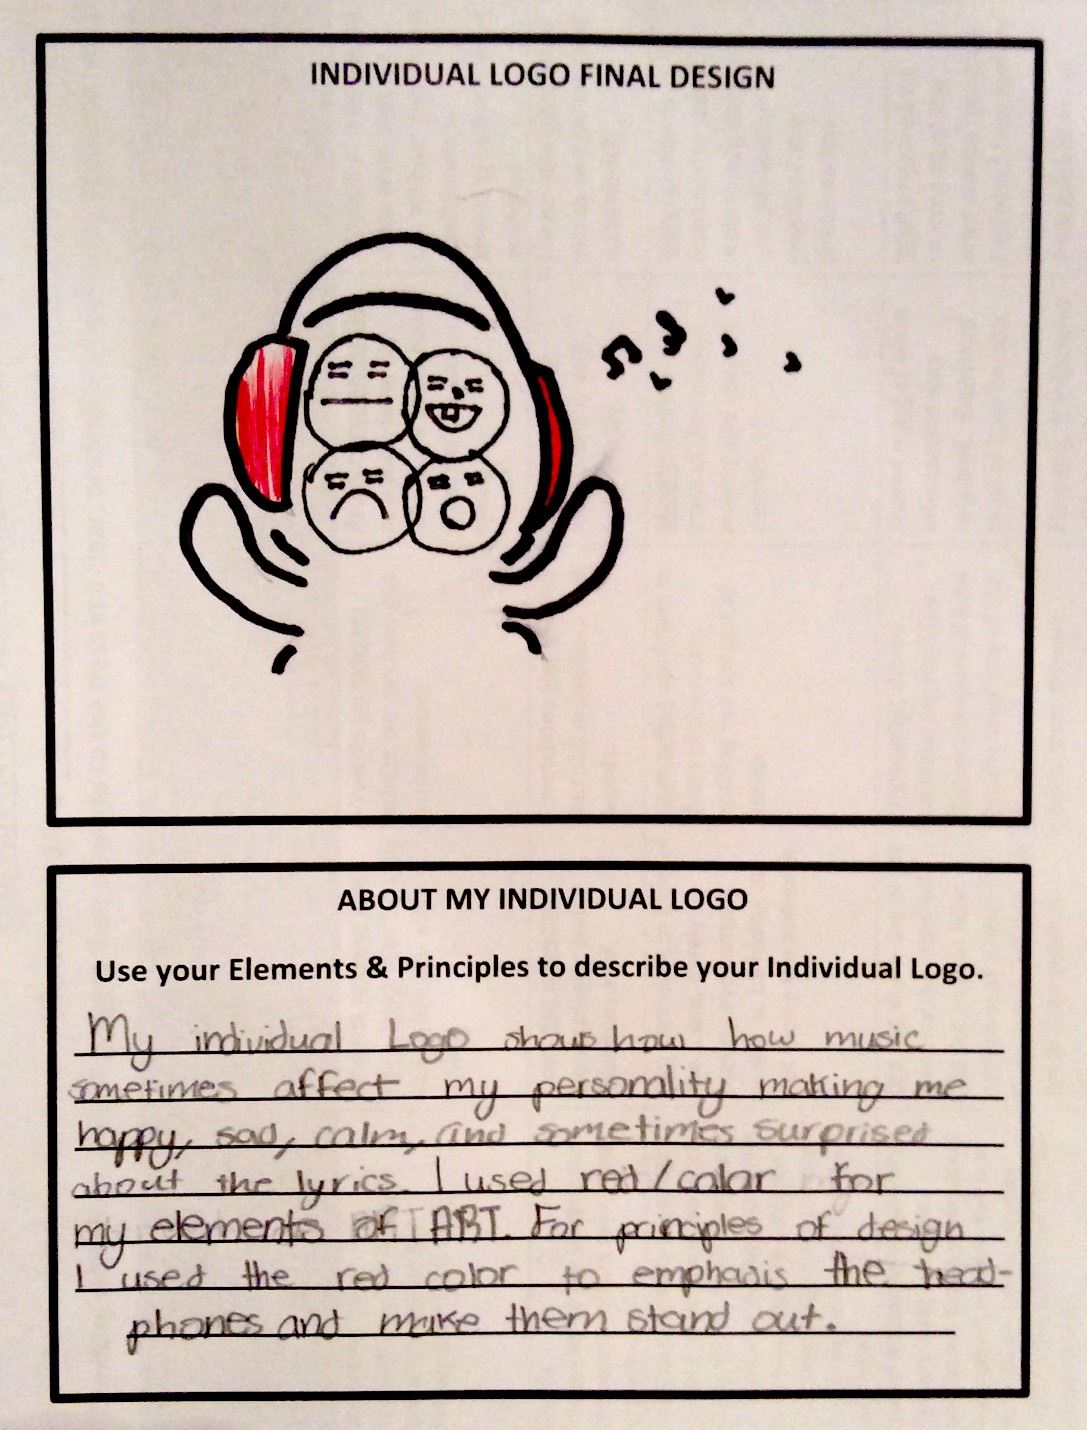 INDIVIDUAL LOGO FINAL DESIGN
ABOUT MY INDIVIDUAL LOGO
Use your Elements & Principles to describe your Individual Logo.
My individual Logo shows how how music
sometimes affect my personality making me
happy, sad, calm, and sometimes surprised
about the lyrics. I used red/color for
my elements of ART. For principles of design
I used the red color to emphasis the head-
phones and make them stand out.